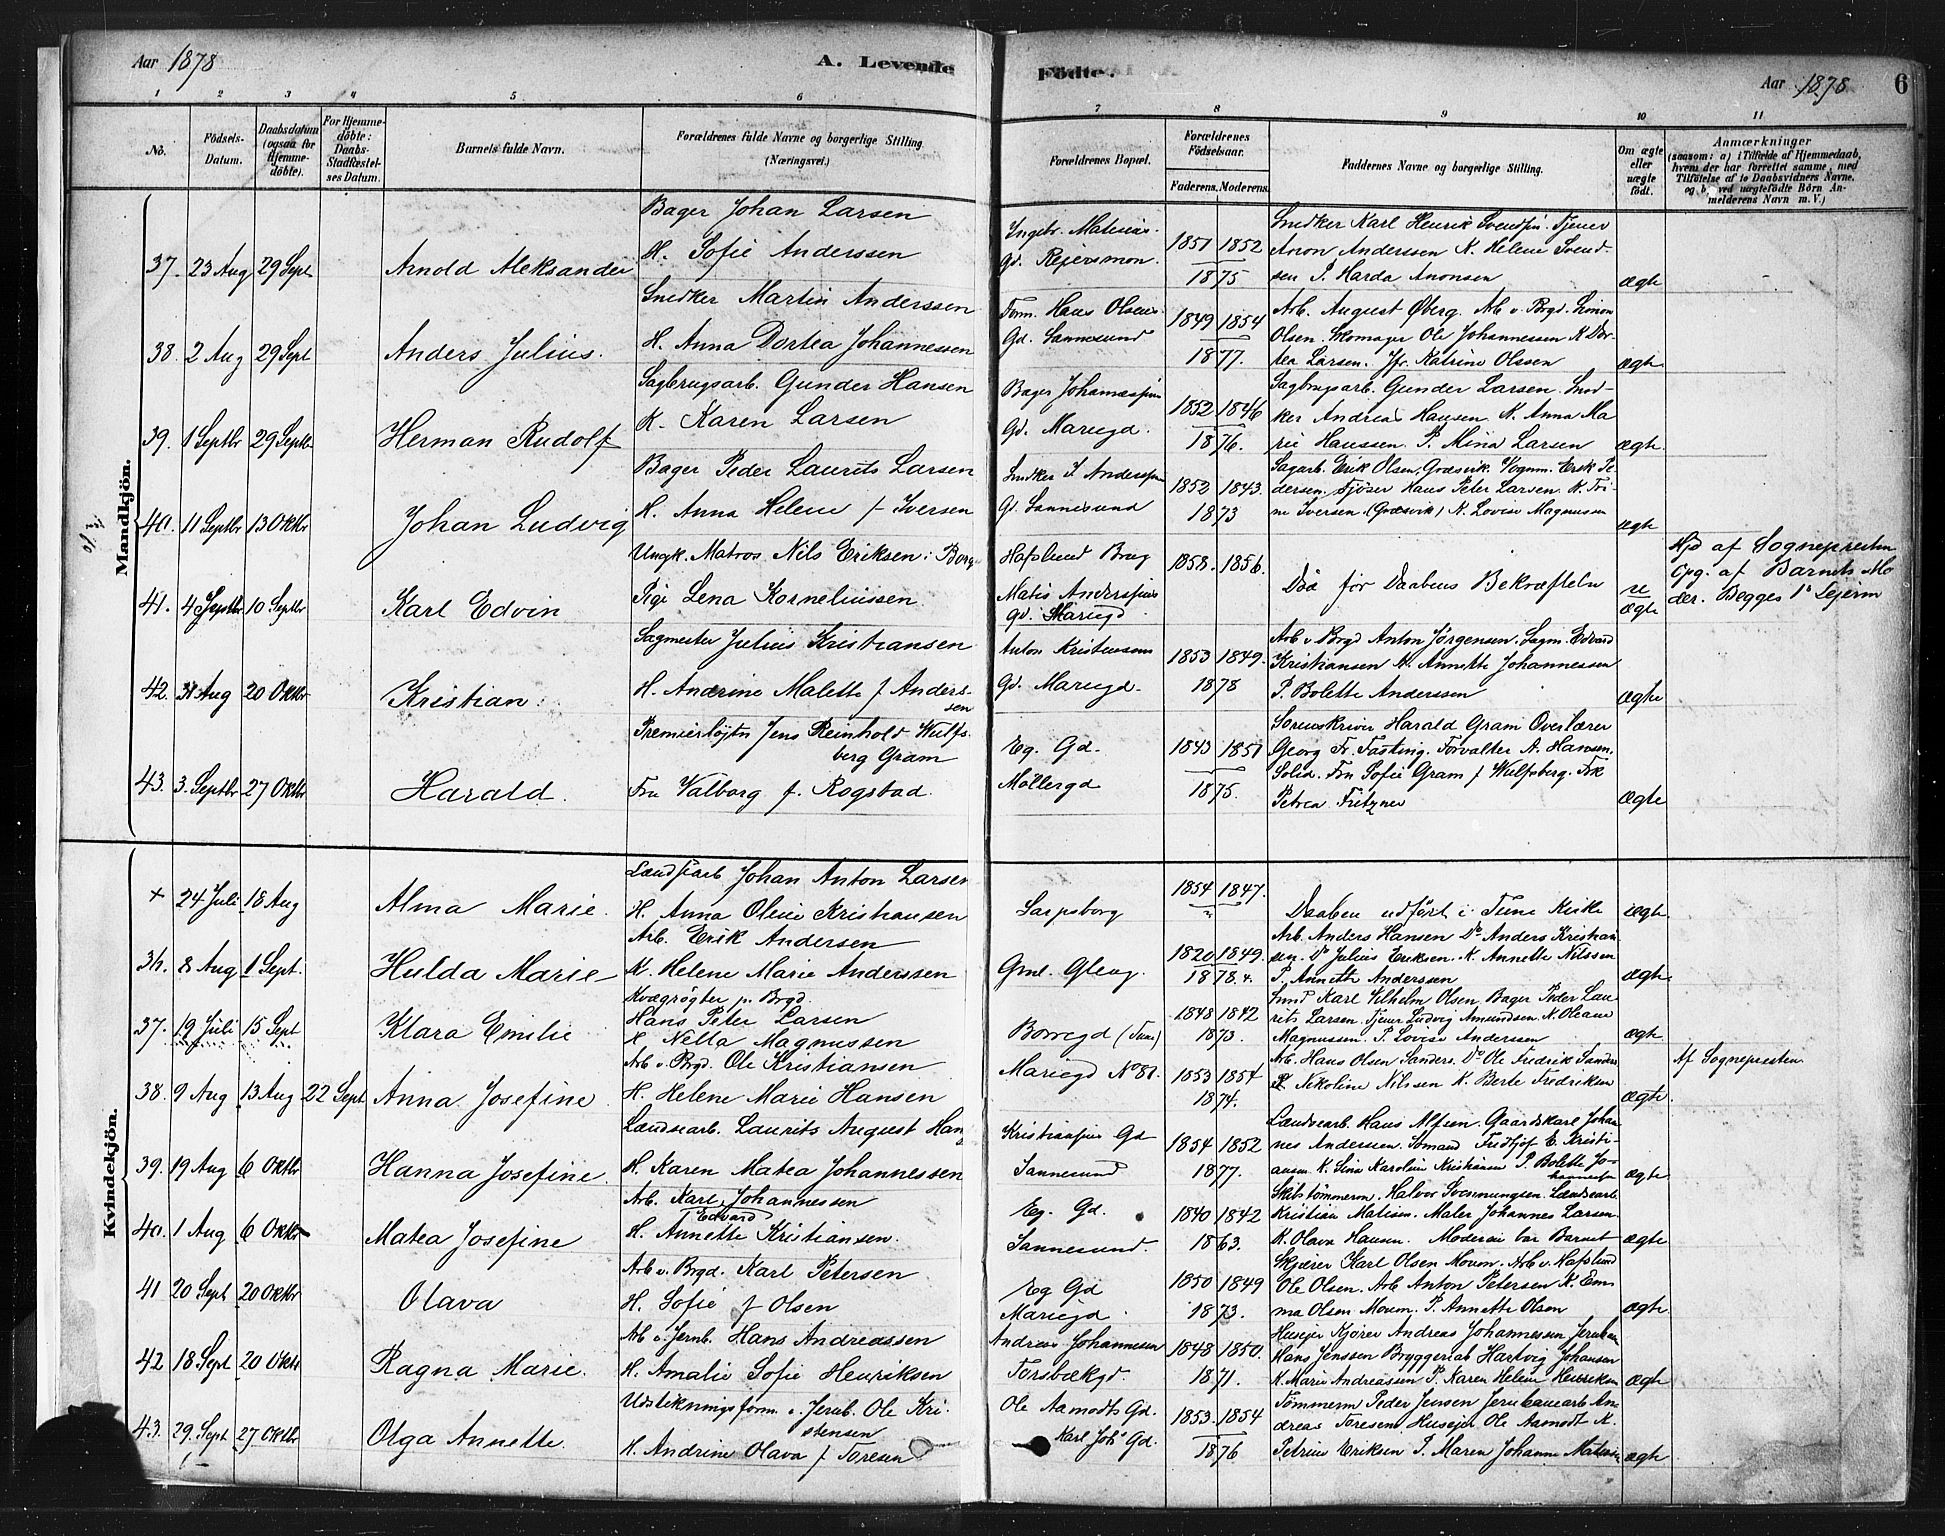 Aar 1878
A. Levende
Födte.
Aar 1878
6
1 2 3 4 5 6
7 8 9 10 11
No.
Födsels-Datum.
Daabsdatum (ogsaa for Hjemme-döbte).
For Hjemme-döbte: Daabs-Stadfæstel-ses Datum.
Barnets fulde Navn.
Forældrenes fulde Navne og borgerlige Stilling. (Næringsvei.)
Forældrenes Bopæl.
Forældrenes Födselsaar.
Faderens. Moderens.
Faddernes Navne og borgerlige Stilling.
Om ægte eller uægte født.
Anmærkninger
(saasom: a) i Tilfælde af Hjemmedaab, hvem der har forrettet samme, med Tilföielse af to Daabsvidners Navne, og b) ved uægtefødte Börn An-melderens Navn m. V.)
Mandkjön.
37. 23 Aug 29 Sept Arnold Aleksander
Bager Johan Larsen
H. Sofie Anderssen
Gd. Rejersmon.
1851 1852
1875
Snedker Karl Henrik Svendsen. Tjener
Anon Anderssen K. Helene Svend-
sen P. Harda Anonsen
ægte
38. 2 Aug 29 Sept Anders Julius.
Snedker Martin Anderssen
H. Anna Dortea Johannessen
Form. Hans Olsens
Gd. Sannesund
1849 1854
1877.
Arb. August Øberg. Arb v. Brgd. Simon
Olsen. Skomager Ole Johannessen K Dor-
tea Larsen. Jfr. Katrine Olssen
ægte
39. 1 Septbr 29 Septb Herman Rudolf
Sagbrugsarb. Gunder Hansen
K. Karen Larsen
Bager Johannessens
Gd. Mariegd.
1852 1846
1876.
Sagbrugsarb. Gunder Larsen. Sned-
ker Andreas Hansen K. Anna Ma
rie Hanssen. P. Mina Larsen
ægte
40. 11 Septbr 13 Oktbr Johan Ludvig
Bager Peder Laurits Larsen
H. Anna Helene f Iversen
Snedker Anderssens
Gd. Sannesund
1852 1843.
1873
Sagarb. Erik Olsen, Grædsvik. Vognm. Erik Pe-
dersen. Fjøser Hans Peter Larsen. K. Tri-
ne Iversen. (Grædsvik) K. Lovise Magnussen
ægte
41. 4 Septbr 10 Septbr Karl Edvin
Ungk. Matros Nils Eriksen i Borge
Pige Lena Korneliussen.
Hafslund Brug
Matis Anderssens
gd. Mariegd
1858. 1856.
Død før Daabens Bekræftelse
uægte
Hjd af Sognepresten
Opg. af Barnets Mo
der. Begges 1ste Lejerm
42. 31 Aug 20 Oktbr Kristian.
Sagmester Julius Kristiansen
H. Andrine Malette f Anders-
sen
Anton Kristiansens
Gd. Mariegd.
1853 1849.
1878
Arb v. Brgd Anton Jørgensen. Sagm. Edvard
Kristiansen K. Annette Johannessen
P. Bolette Anderssen
ægte
43. 3. Septbr 27 Oktbr Harald.
Premierløjtn Jens Reinhold Wulfs-
berg Gram
Fru Valborg f. Rogstad.
Eg. Gd.
Møllergd
1843 1851
1875.
Sorenskriver Harald Gram Overlærer
Georg Fr. Fasting. Forvalter A. Hansen.
Solid. Fru Sofie Gram f Wulfsberg. Frk
Petrea Fritzner
ægte
Kvindekjön.
+ 24 Juli 18 Aug Alma Marie.
Johan Anton Larsen
H. Anna Oline Kristiansen
Sarpsborg
1854 1847.
Daaben udført i Tune Kirke
ægte
36. 8 Aug 1 Sept. Hulda Marie
Arb. Erik Andersen
K. Helene Marie Anderssen
Gml. Gleng.
1820 1849.
1878.
Arb. Anders Hansen Do Anders Kristian
sen. Do Julius Eriksen. K. Annette Nilssen
P. Annette Anderssen
ægte
37. 19 Juli 15 Sept Klara Emilie
Kvægrøgter p. Brgd.
Hans Peter Larsen
K Nella Magnussen
Borregd (Tune)
1848 1842
1873.
Karl Vilhelm Olsen, Bager Peder Lau
rits Larsen. Tjener Ludvig Amundsen. K. Oleane
Magnussen. P. Lovise Anderssen
ægte
38. 9 Aug 13 Aug 22 Sept Anna Josefine
Arb v. Brgd. Ole Kristiansen
H. Helene Marie Hansen
Mariegd No 87.
1853 1854
1874.
Arb. Hans Olsen Sanders. Do Ole Fredrik Sanders
Nikoline Nilssen K. Berte Fredriksen
ægte.
Af Sognepresten
39. 19 Aug 6 Oktbr Hanna Josefine.
Landsearb. Laurits August Han
H. Karen Matea Johannessen
Kristiansens Gd
Sannesund
1854 1852
1877.
Landsearb. Hans Alfsen. Gaardskarl Johan-
nes Anderssen. Sømand Fridtjof E. Kristi-
ansen K. Sina Karoline Kristiansen P. Bolette Jo-
hannessen
ægte
40. 1 Aug 6 Oktbr Matea Josefine
Arb. Karl Johannessen
Edvard
H. Annette Kristiansen.
Eg. Gd.
Sannesund.
1840 1842
1863.
Skibstømmerm. Halvor Svenmungsen. Landsearb
Kristian Matisen. Maler Johannes Larsen
K. Olava Hansen. Moderen bar Barnet
ægte
41 20 Sept 20 Oktbr Olava
Arb v. Brgd. Karl Petersen
H. Sofie f Olsen
Eg Gd
Mariegd.
1850 1849
1873.
Skjærer Karl Olsen Moum. Arb v. Hafslund
Ole Olsen. Arb Anton Petersen K. Em-
ma Olsen Moum. P. Annette Olsen
ægte
42 18 Sept 20 Oktr Ragna Marie.
Arb v. Jernb. Hans Andreassen
H. Amalie Sofie Henriksen
Andreas Johannessen
Torsbækgd.
1848 1850.
1871.
Husejer Kjører Andreas Johannessen Jernban
Hans Jenssen Bryggeriarb Hartvig Johansen
K. Marie Andreassen P. Karen Helene Henriksen
ægte
43. 29. Sept 27 Oktbr Olga Annette.
Udstikningsform. v. Jernb. Ole Kri-
stensen
H. Andrine Olava f Toresen
Ole Aamodts Gd.
Karl Johs Gd.
1853 1854
1876
Tømmerm Peder Jensen Jernbanearb An-
dreas Toresen Husejer Ole Aamodt K.
Petrine Eriksen P. Maren Johanne Matisen
ægte